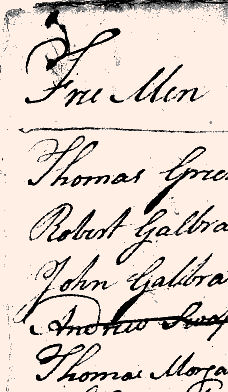 Free Men
Thomas Gree
Robert Galbra
John Galbra
Andrew Swa
Thomas Morga